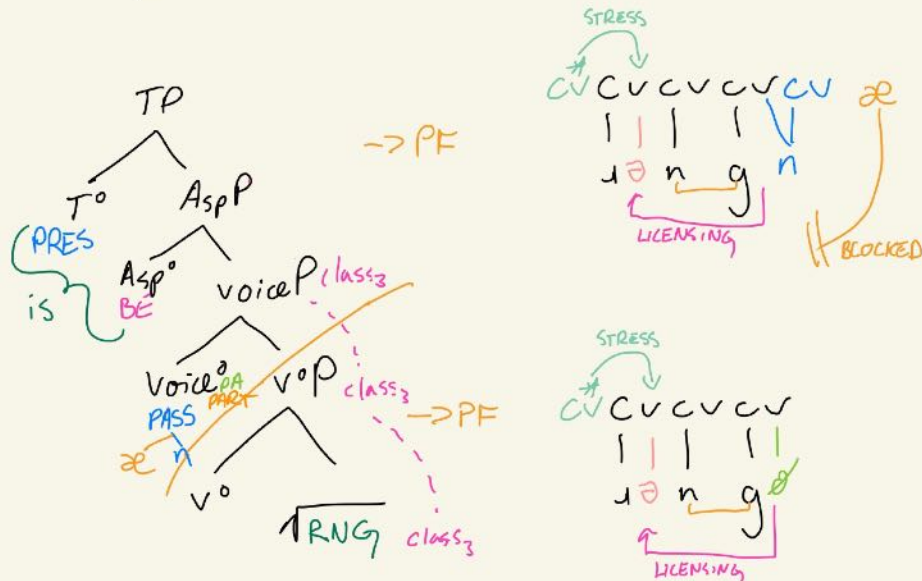 TP
T° AspP
PRES
is
Asp° voiceP class₃
BE
Voice° PA v°P class₃
PART
PASS
æ n
v° √RNG class₃
→ PF
→ PF
STRESS
CV CV CV CV CV æ
ɹ ə n g n
LICENSING
BLOCKED
STRESS
CV CV CV CV
ɹ ə n g ø
LICENSING